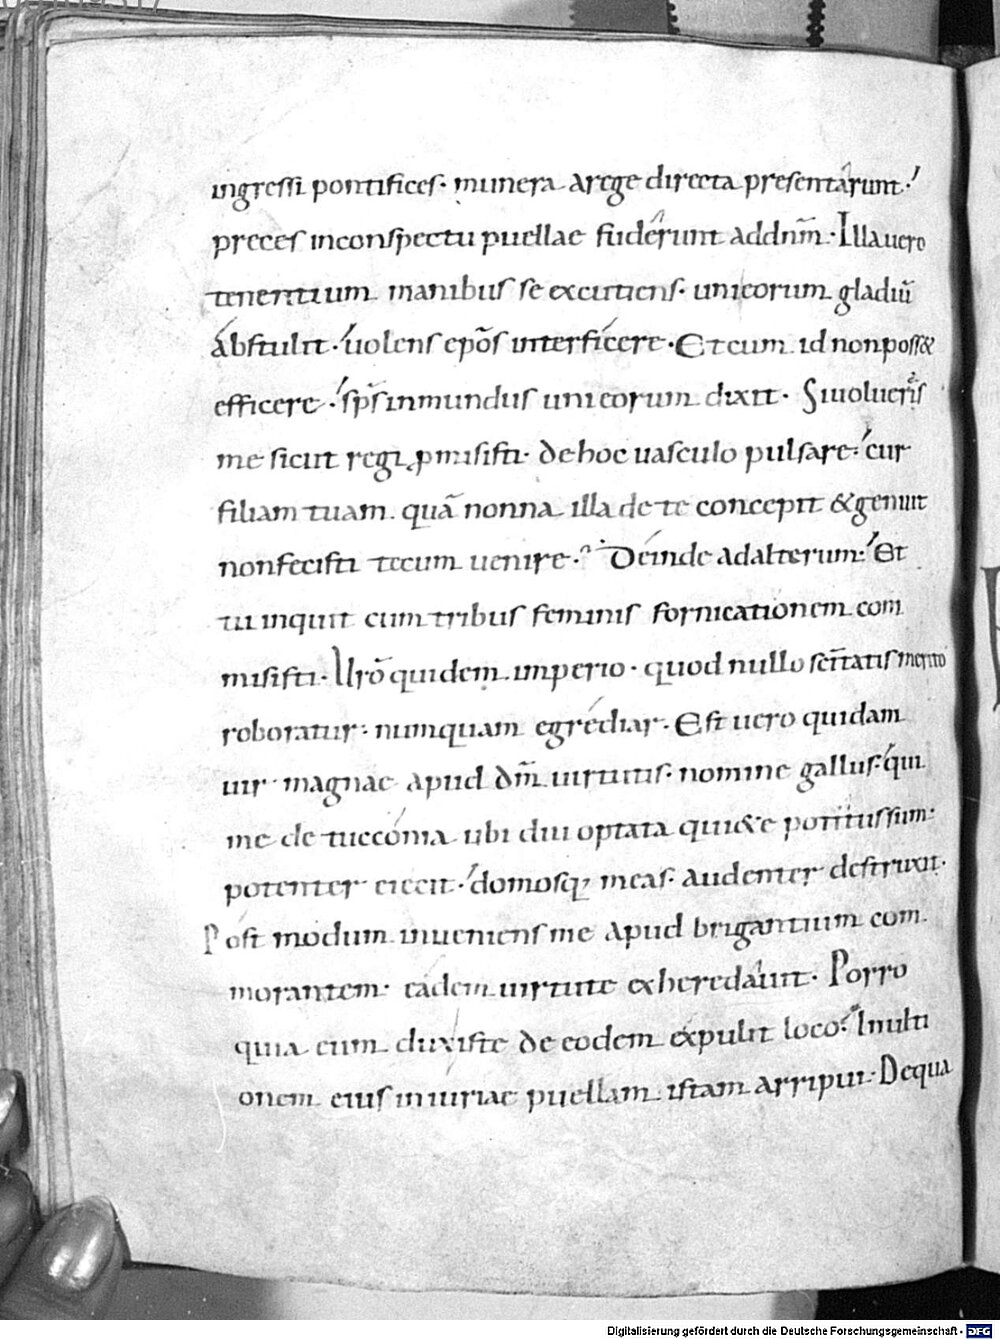 ingressi pontifices· munera arege directa presentarunt·
preces inconspectu puellae fuderunt addnm̄· Illauero
tenentium manibus se excutiens· unicorum gladiū
abstulit· uolens ep̄os interficere· Etcum id nonposs&
efficere· sp̄s inmundus unicorum dixit· Siuolueris
me sicut regi ꝓmisisti· dehoc uasculo pulsare· cur
filiam tuam quā nonna illa de te concepit &genuit
nonfecisti tecum uenire·? Deinde adalterum· Et
tu inquit cum tribus feminis fornicationem com
misisti· Ur̄o quidem imperio· quod nullo sc̄itatis merito
roboratur· numquam egrediar· Est uero quidam
uir magnae apud dm̄ uirtutis· nomine gallus· qui
me de tucconia ubi diu optata qui&e potitussum·
potenter eiecit· domosq; meas audenter destruxit·
Post modum inueniens me apud brigantium com
morantem· eadem uirtute exheredauit· Porro
quia eum duxiste de eodem expulit loco· Inulti
onem eius iniuriae puellam istam arripui· Dequa
Digitalisierung gefördert durch die Deutsche Forschungsgemeinschaft - DFG